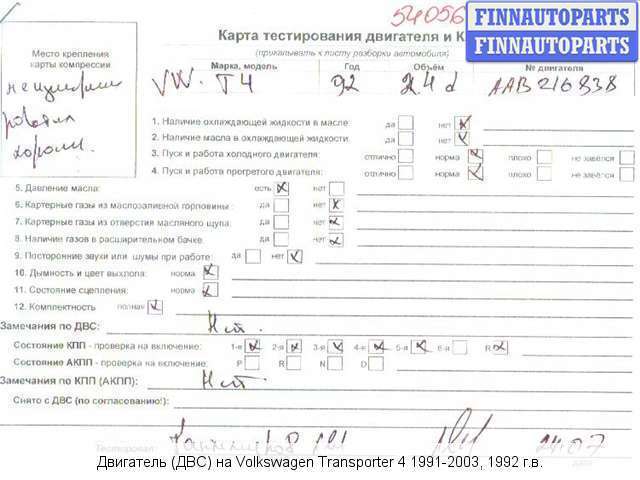 54056
FINNAUTOPARTS
FINNAUTOPARTS
Карта тестирования двигателя и К
(прикалывать к листу разборки автомобиля)
Место крепления
карты компрессии
Марка, модель Год Объём № двигателя
VW. T4 92 2.4d AAB216938
работал
хорошо.
1. Наличие охлаждающей жидкости в масле: да нет
2. Наличие масла в охлаждающей жидкости: да нет
3. Пуск и работа холодного двигателя: отлично норма плохо не завёлся
4. Пуск и работа прогретого двигателя: отлично норма плохо не завёлся
5. Давление масла: есть нет
6. Картерные газы из маслозаливной горловины: да нет
7. Картерные газы из отверстия масляного щупа: да нет
8. Наличие газов в расширительном бачке: да нет
9. Посторонние звуки или шумы при работе: да нет
10. Дымность и цвет выхлопа: норма
11. Состояние сцепления: норма
12. Комплектность полная
Замечания по ДВС: Нет.
Состояние КПП - проверка на включение: 1-я 2-я 3-я 4-я 5-я 6-я R
Состояние АКПП - проверка на включение: P R N D
Замечания по КПП (АКПП): Нет
Снято с ДВС (по согласованию!):
Тестировал:
Двигатель (ДВС) на Volkswagen Transporter 4 1991-2003, 1992 г.в.